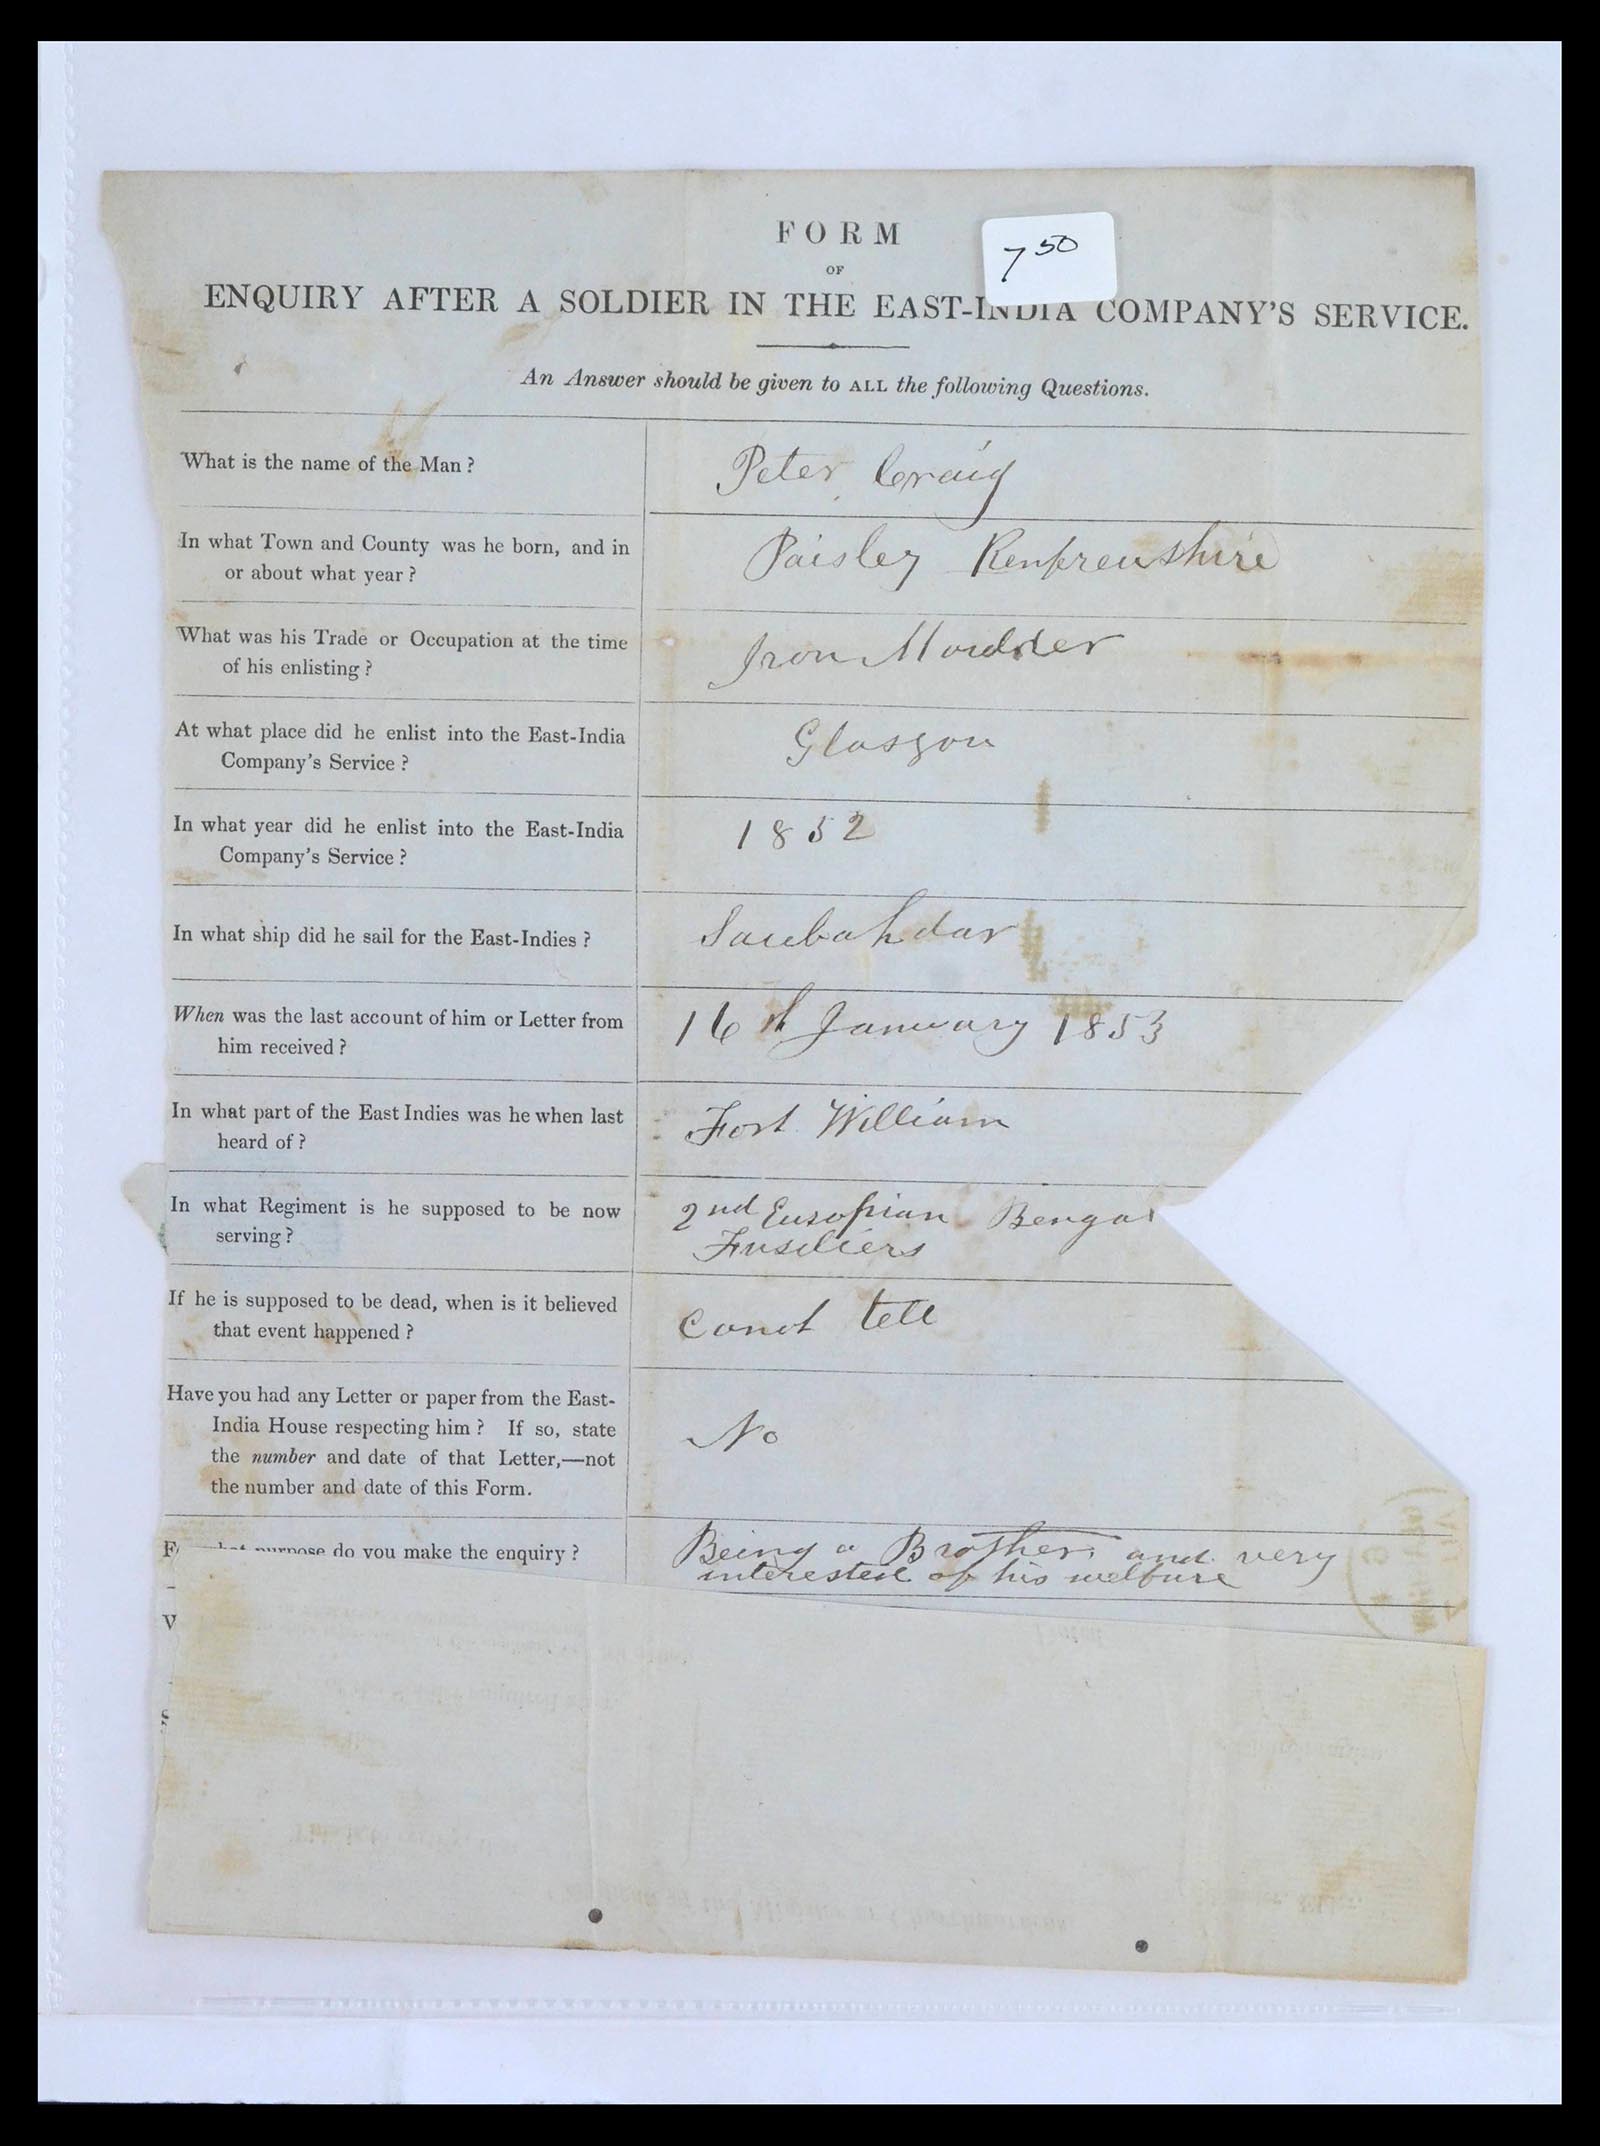 FORM
OF
ENQUIRY AFTER A SOLDIER IN THE EAST-INDIA COMPANY'S SERVICE.
7 50
An Answer should be given to ALL the following Questions.
What is the name of the Man ?
Peter Craig
In what Town and County was he born, and in
or about what year ?
Paisley Renfrewshire
What was his Trade or Occupation at the time
of his enlisting ?
Iron Moulder
At what place did he enlist into the East-India
Company's Service ?
Glasgow
In what year did he enlist into the East-India
Company's Service ?
1852
In what ship did he sail for the East-Indies ?
Saubahdar
When was the last account of him or Letter from
him received ?
16th January 1853
In what part of the East Indies was he when last
heard of ?
Fort William
In what Regiment is he supposed to be now
serving ?
2nd Euroopian Bengal
Fusiliers
If he is supposed to be dead, when is it believed
that event happened ?
Canot tell
Have you had any Letter or paper from the East-
India House respecting him ? If so, state
the number and date of that Letter,—not
the number and date of this Form.
No
purpose do you make the enquiry ?
Being a Brother and very
interested of his welfare